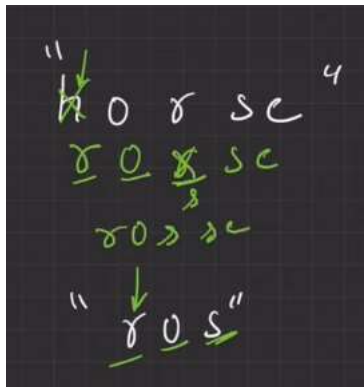 "horse"
rorse
s
rosse
"ros"